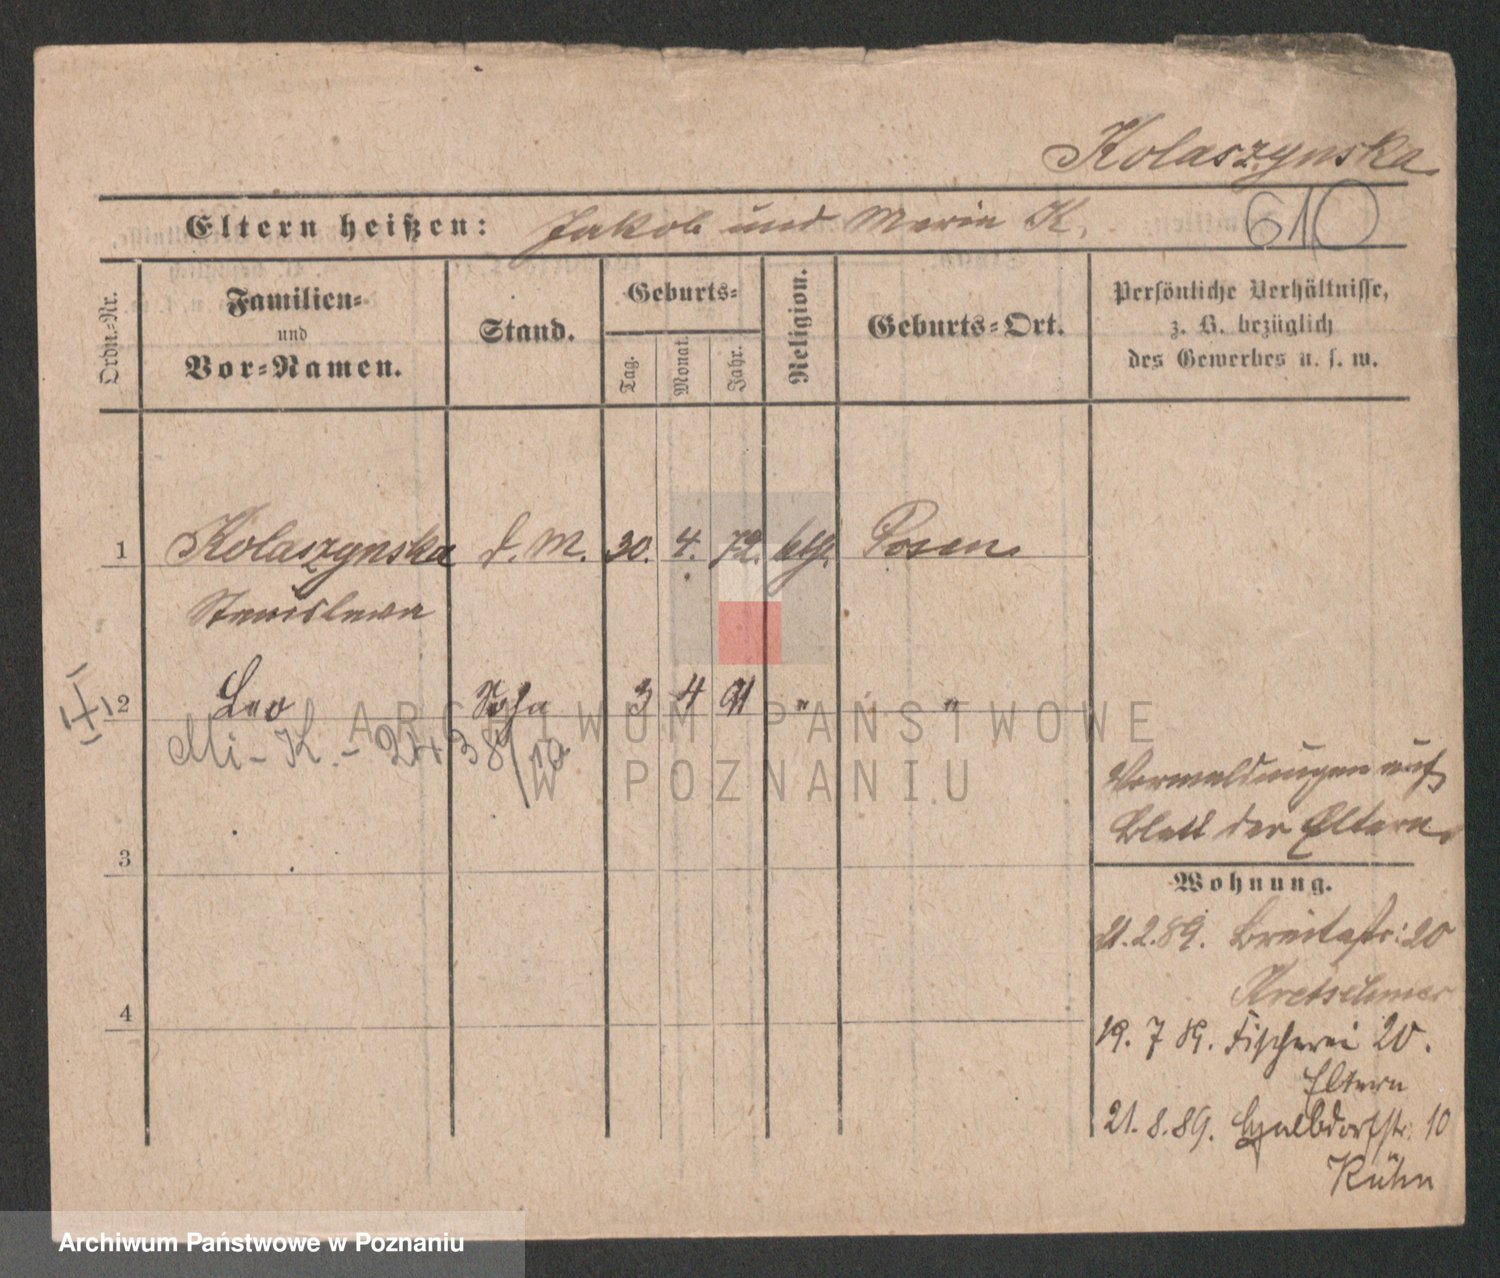 Kolaszynska.
Eltern heißen: Jakob und Maria K.
610
Ordn.-Nr.
Familien-
und
Vor-Namen.
Stand.
Geburts-
Tag.
Monat.
Jahr.
Religion.
Geburts-Ort.
Persönliche Verhältnisse,
z. B. bezüglich
des Gewerbes u. s. w.
1 Kolaszynska d. M. 30. 4. 72. ktl. Posen.
Stanislawa
2 Leo Sohn 3 4 91 " "
Mi-K.-
ARCHIWUM PAŃSTWOWE
W POZNANIU
Vormeldungen auf
Blatt der Eltern.
3
Wohnung.
21.2.89. Breitestr: 20
Kretschmer
4
19. 7 89. Fischerei 20.
Eltern
21.8.89. Halbdorfstr. 10
Kühn
Archiwum Państwowe w Poznaniu